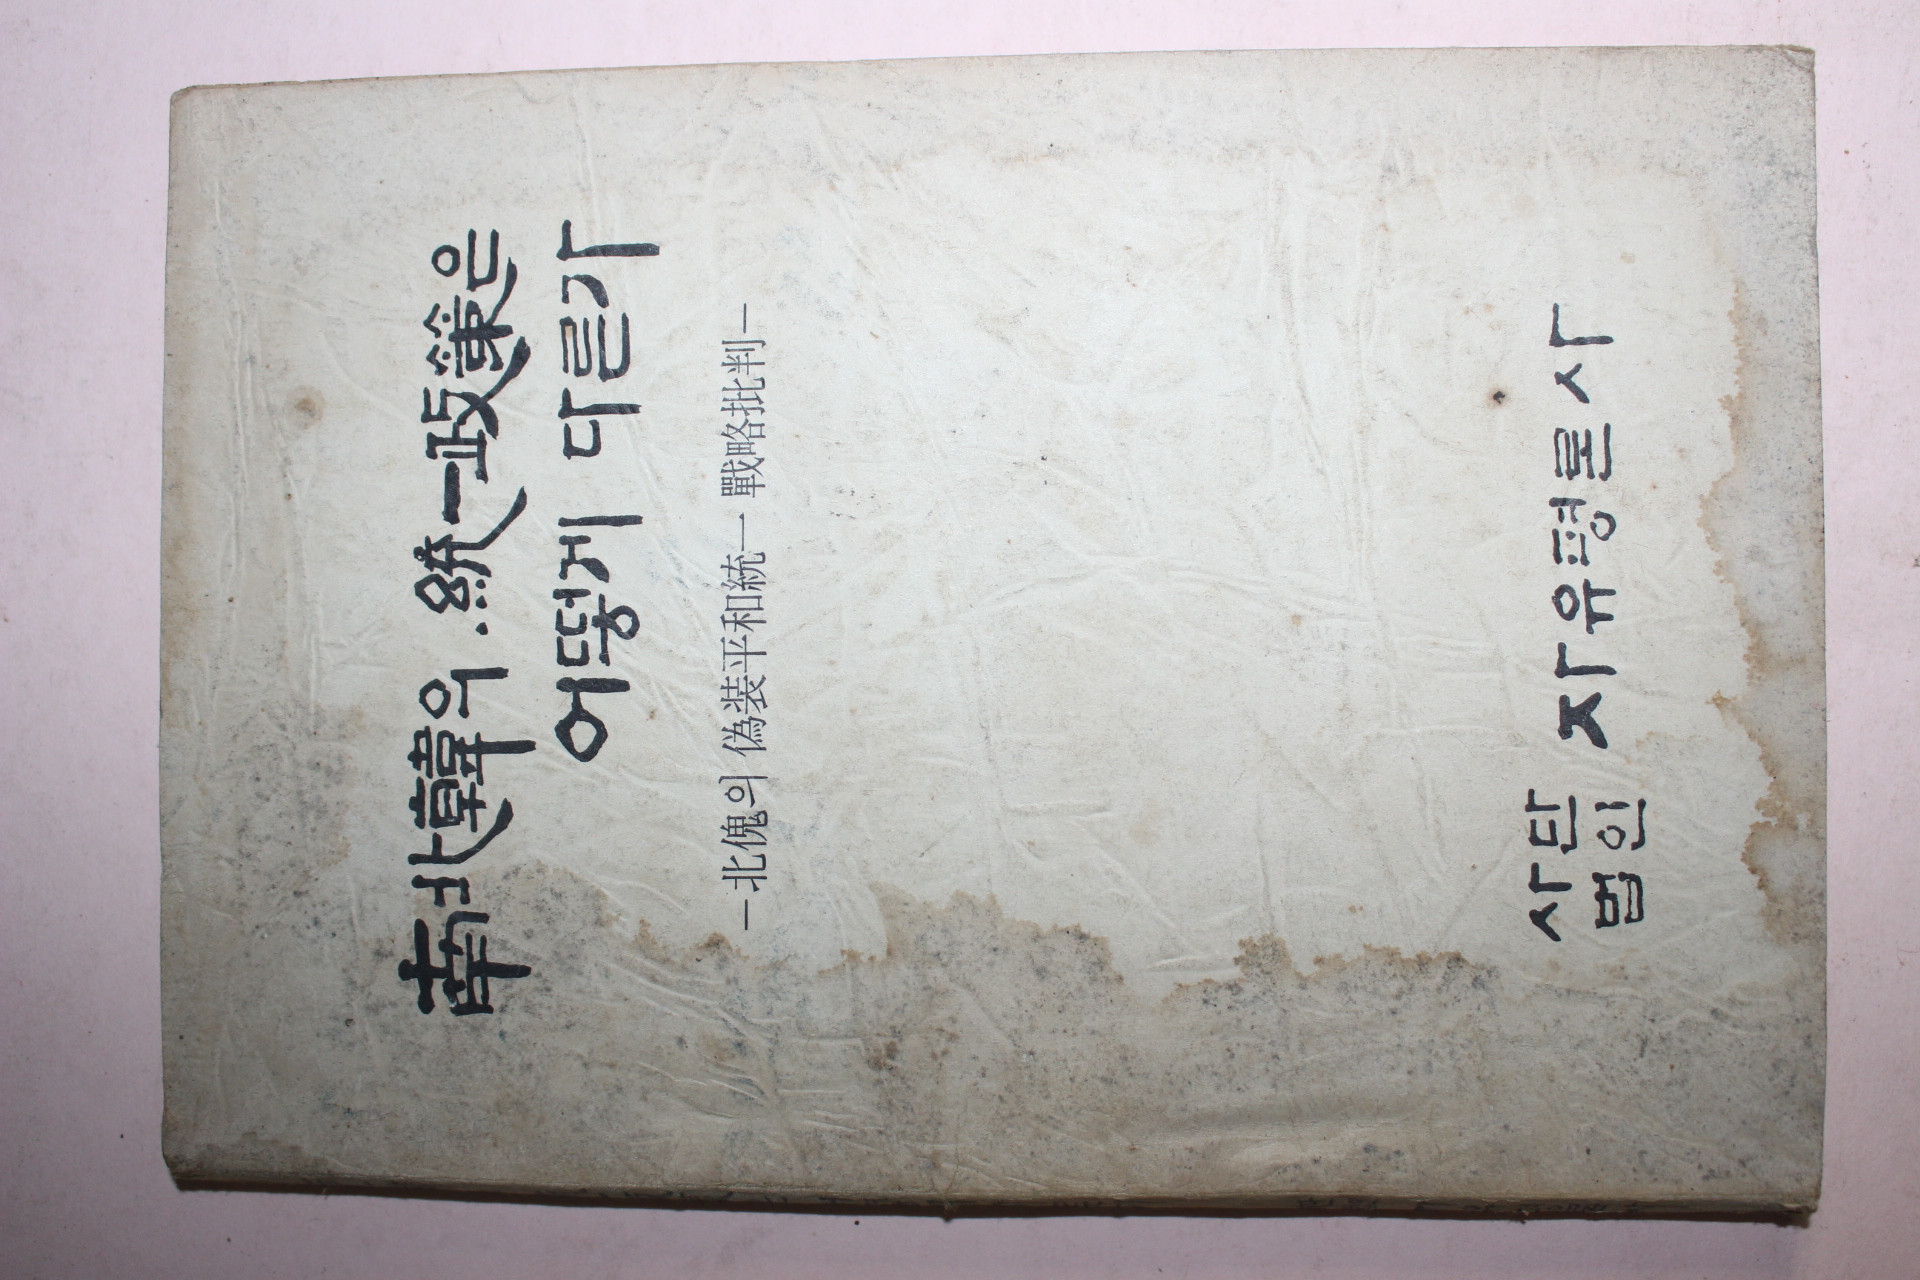 南北韓의 統一政策은
어떻게 다른가
―北傀의 偽装平和統一 戰略批判―
사단
법인 자유평론사